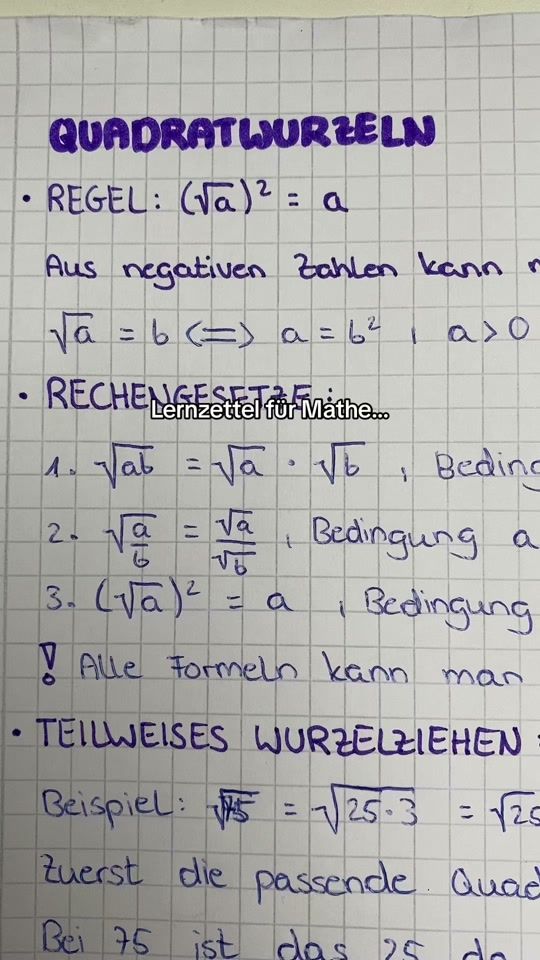 QUADRATWURZELN
• REGEL: (√a)² = a
Aus negativen Zahlen kann
√a = b <=> a = b² , a > 0
• RECHENGESETZE:
Lernzettel für Mathe...
1. √ab = √a · √b , Beding
2. √(a/b) = √a/√b , Bedingung a
3. (√a)² = a , Bedingung
! Alle Formeln kann man
• TEILWEISES WURZELZIEHEN:
Beispiel: √75 = √25·3 = √25
Zuerst die passende Quad
Bei 75 ist das 25 da